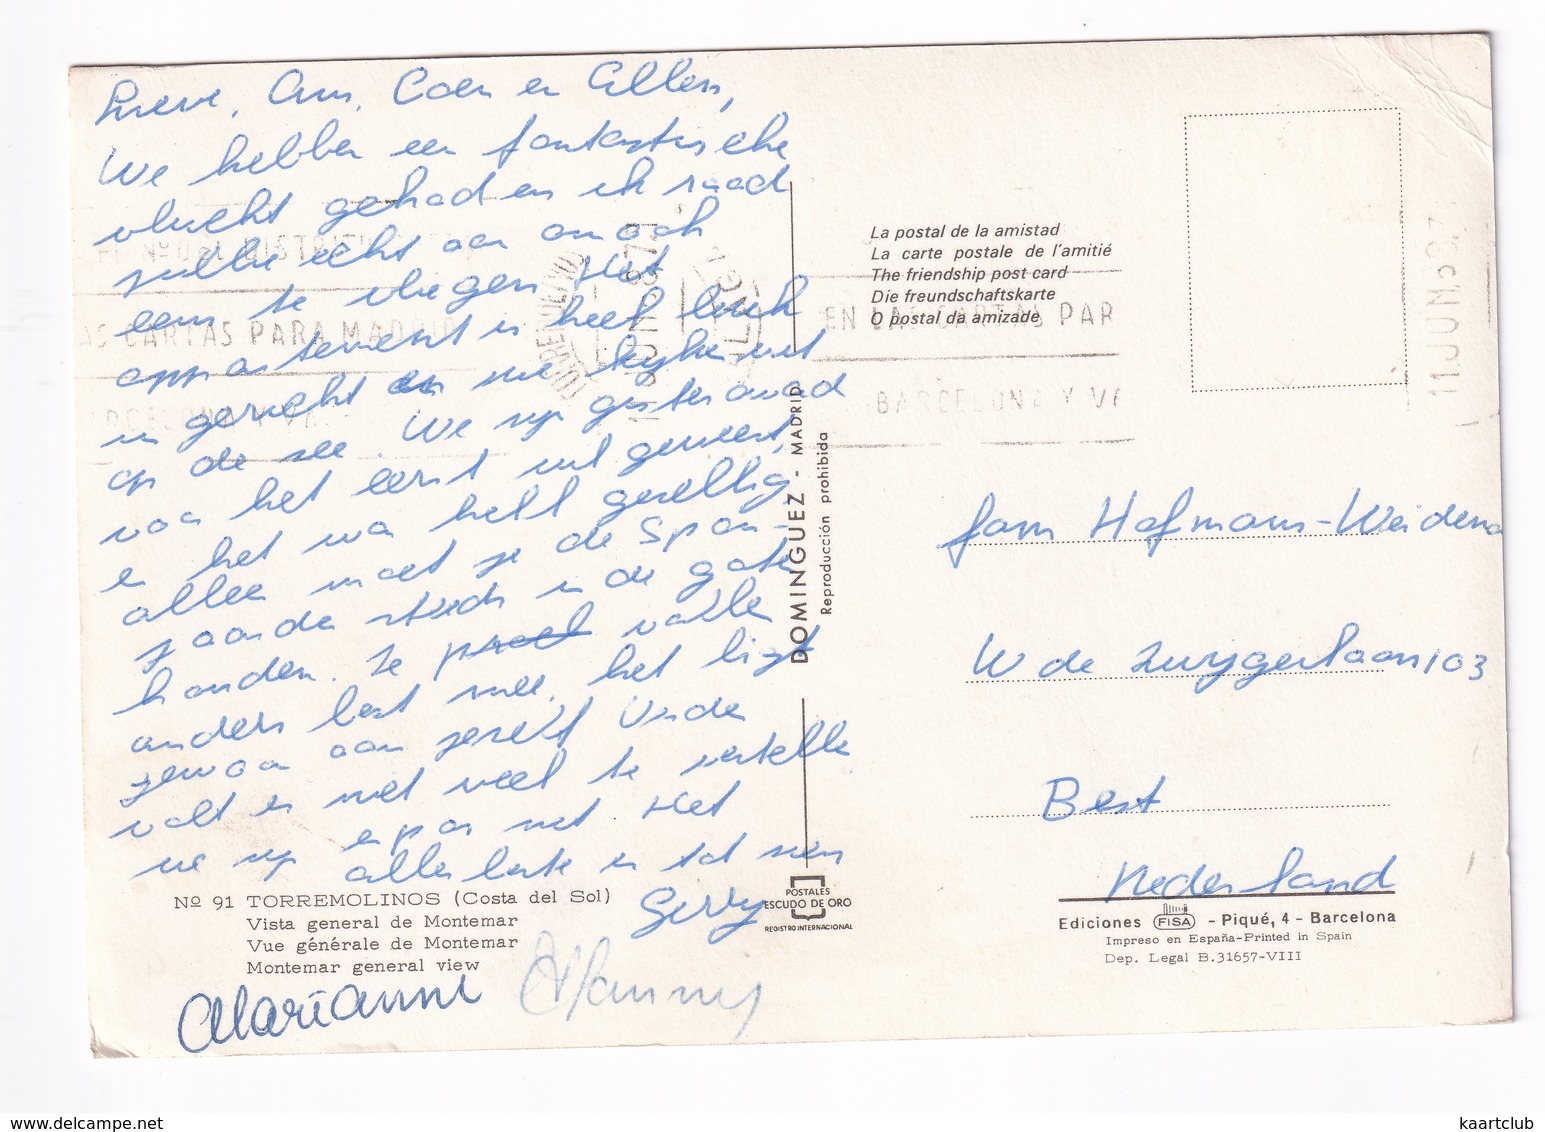 Lieve, Ans, Coen en Allen,
We hebben een fantastische
vlucht gehad en ik raad
jullie echt aan om ook
eens te vliegen. Het
appartement is heel leuk
in gericht en we kijken uit
op de zee. We zijn gisteravond
voor het eerst uit geweest,
en het was heel gezellig
alleen moet je de Span-
jaarden steeds in de gaten
houden. Ze vallen
anders best mee, het ligt
gewoon aan jezelf. Verder
valt er niet veel te vertellen
we zijn er pas net. Het
allerbeste en tot ziens
Gerry
Marianne
Hanny
Nº 91 TORREMOLINOS (Costa del Sol)
Vista general de Montemar
Vue générale de Montemar
Montemar general view
DOMINGUEZ - MADRID
Reproducción prohibida
POSTALES
ESCUDO DE ORO
REGISTRO INTERNACIONAL
La postal de la amistad
La carte postale de l'amitié
The friendship post card
Die freundschaftskarte
O postal da amizade
AS CARTAS PARA MADRID
EN LAS CARTAS PAR
BARCELONA Y VA
TORREMOLINOS
11.JUN.
fam Hofmans-Weidena
W de Zwijgerlaan 103
Best
Nederland
Ediciones FISA - Piqué, 4 - Barcelona
Impreso en España-Printed in Spain
Dep. Legal B.31657-VIII
kaartclub
delcampe.net